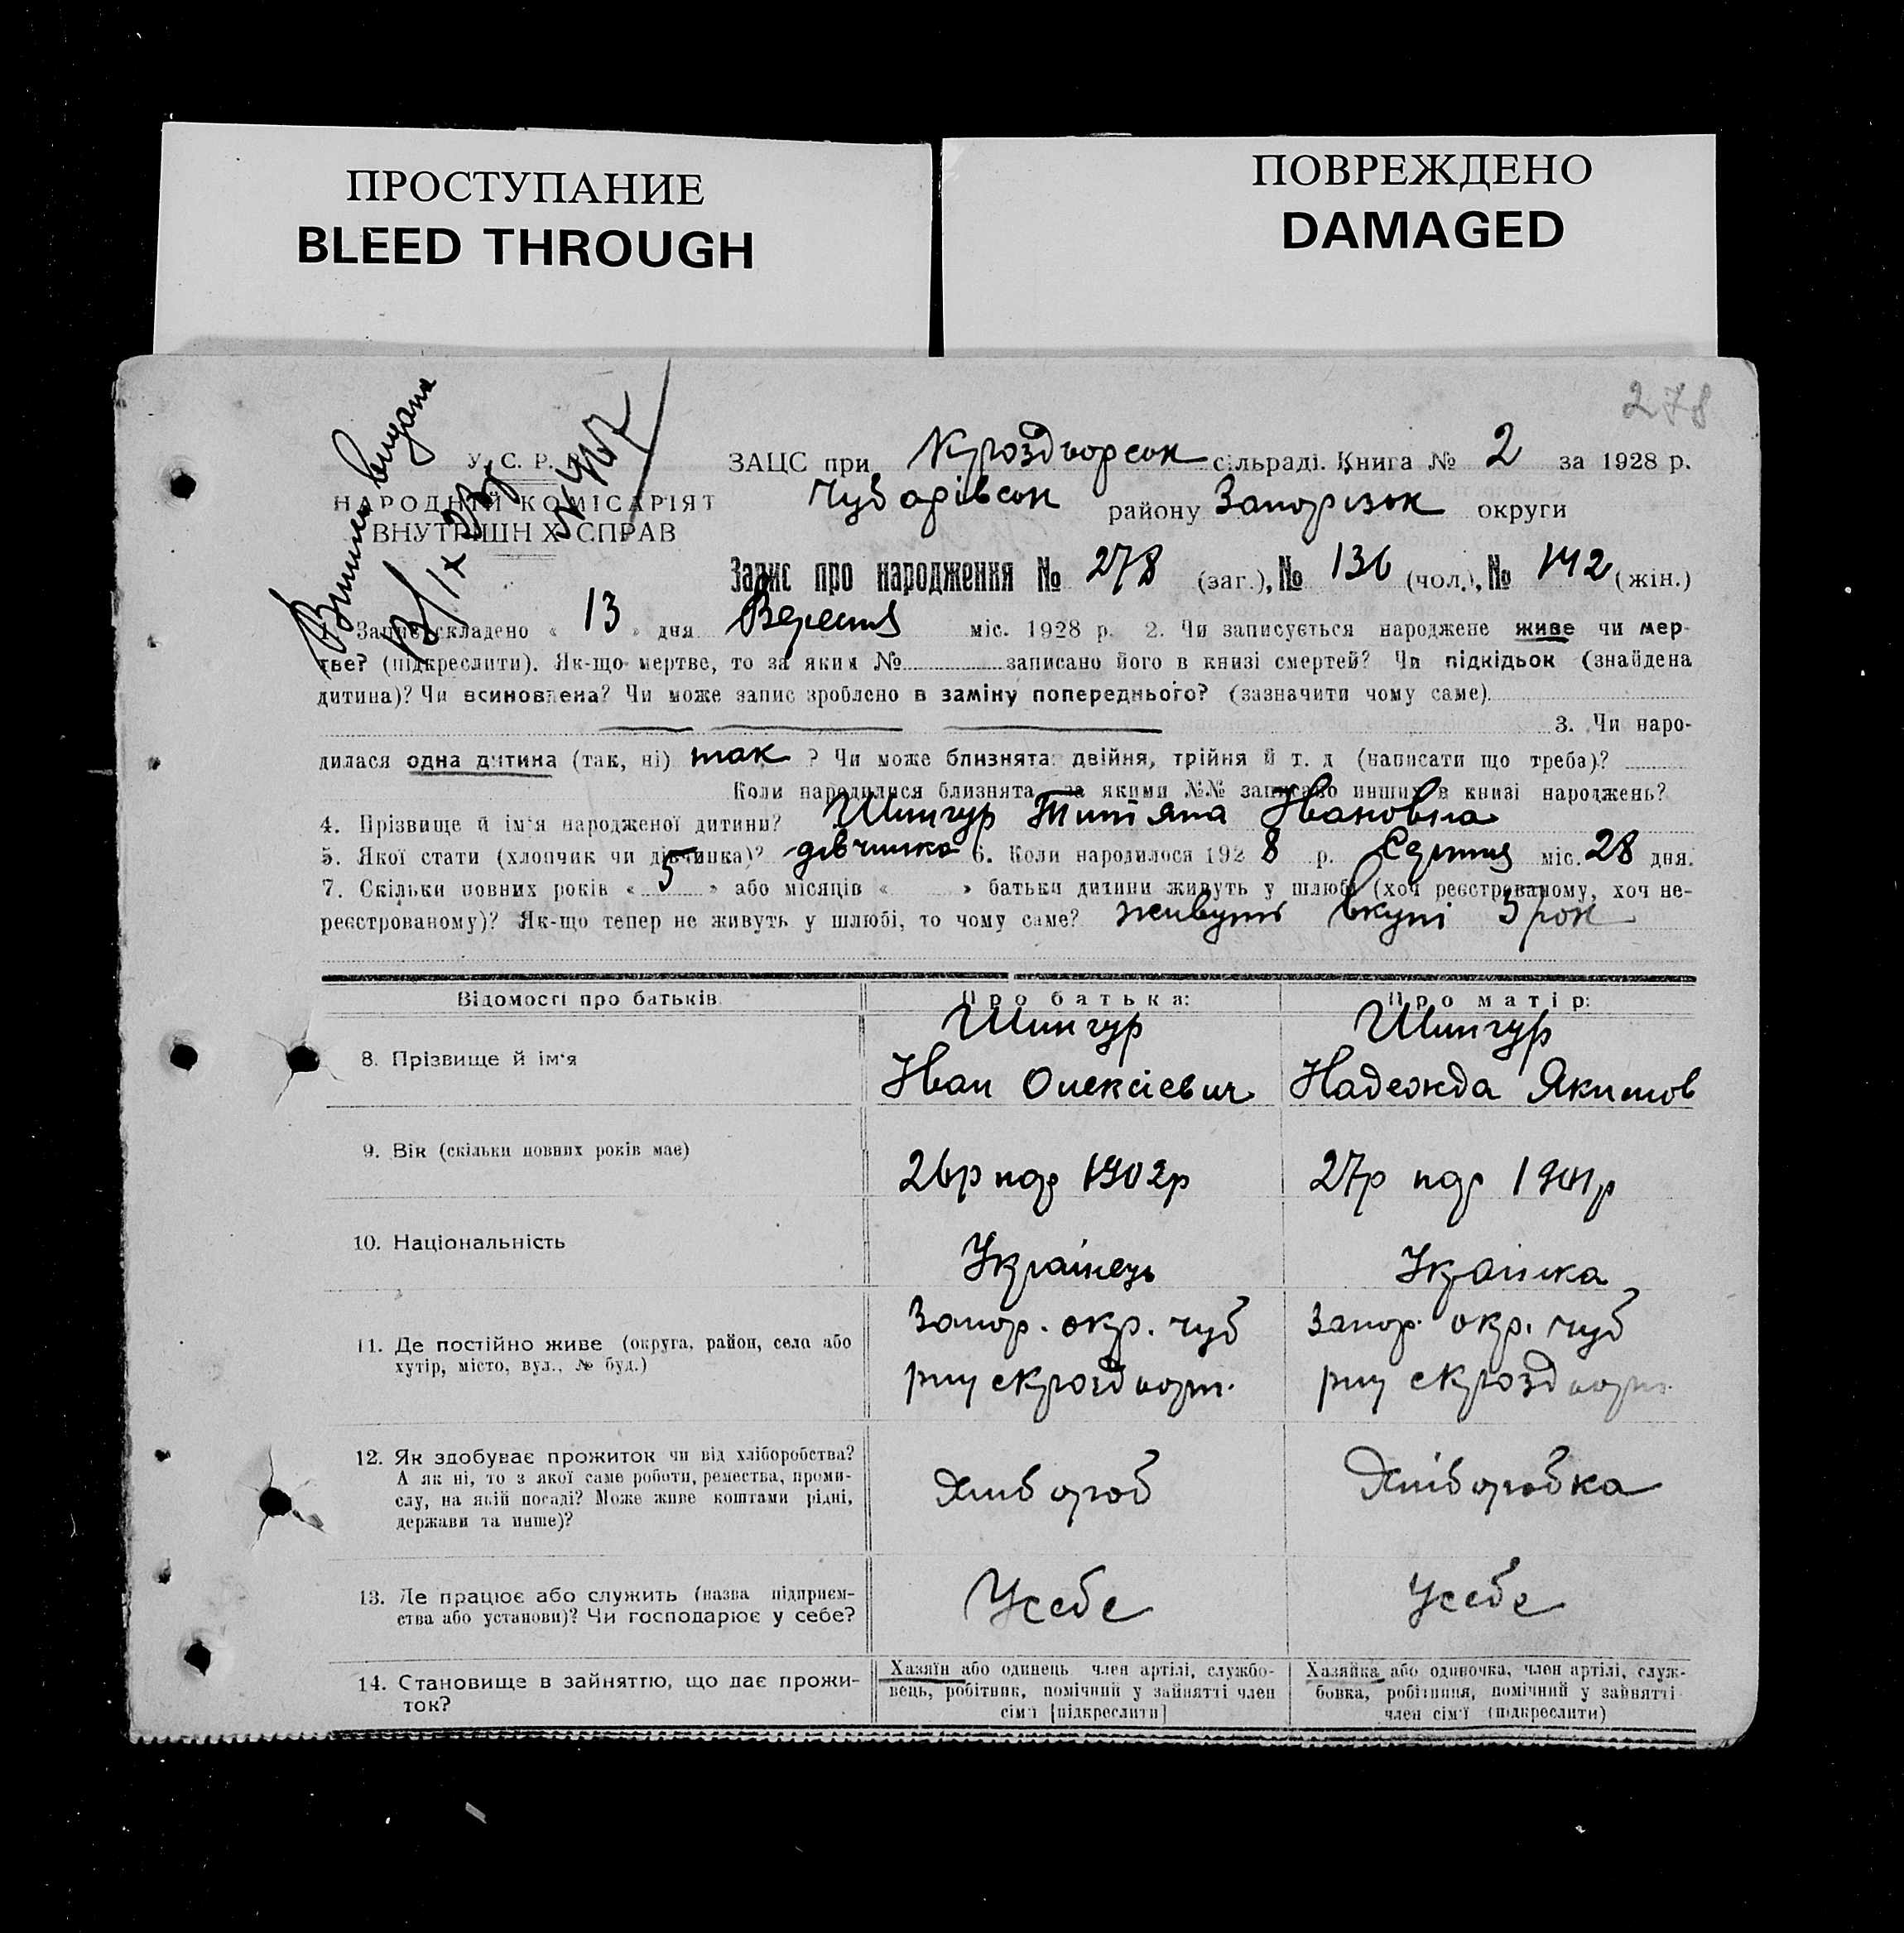 ПРОСТУПАНИЕ
BLEED THROUGH
ПОВРЕЖДЕНО
DAMAGED
278
У. С. Р. Р.
НАРОДНІЙ КОМІСАРІЯТ
ВНУТРІШНІХ СПРАВ
ЗАЦС при сільраді. Книга № 2 за 1928 р.
Чубарівськ району Запорізьк округи
Запис про народження № 278 (заг.), № 136 (чол.), № 142 (жін.)
Запис складено « 13 » дня Вересня міс. 1928 р. 2. Чи записується народжене живе чи мер-
тве? (підкреслити). Як-що мертве, то за яким № записано його в книзі смертей? Чи підкідьок (знайдена
дитина)? Чи всиновлена? Чи може запис зроблено в заміну попереднього? (зазначити чому саме)
3. Чи наро-
дилася одна дитина (так, ні) так ? Чи може близнята: двійня, трійня й т. д (написати що треба)?
Коли народилися близнята, за якими №№ записано инших в книзі народжень?
4. Прізвище й ім'я народженої дитини? Шингур Тит'яна Івановна
5. Якої стати (хлопчик чи дівчинка)? дівчинка 6. Коли народилося 1928 р. Серпня міс. 28 дня.
7. Скільки повних років « 5 » або місяців « » батьки дитини живуть у шлюбі (хоч реєстрованому, хоч не-
реєстрованому)? Як-що тепер не живуть у шлюбі, то чому саме? живуть вкупі 5 рок
Відомості про батьків Про батька: Про матір:
8. Прізвище й ім'я
Шингур Шингур
Іван Олексієвич Надежда Якимов
9. Вік (скільки повних років має)
26р нар 1902р 27р нар 1901р
10. Національність
Українець Украінка
11. Де постійно живе (округа, район, село або
хутір, місто, вул., № буд.)
Запор. окр. чуб Запор. окр. чуб
12. Як здобуває прожиток чи від хліборобства?
А як ні, то з якої саме роботи, ремества, проми-
слу, на якій посаді? Може живе коштами рідні,
держави та инше)?
Хлібороб Хліборобка
13. Де працює або служить (назва підприєм-
ства або установи)? Чи господарює у себе?
Усебе Усебе
14. Становище в зайняттю, що дає прожи-
ток?
Хазяїн або одинець член артілі, службо-
вець, робітник, помічний у зайнятті член
сім'ї [підкреслити]
Хазяйка або одиночка, член артілі, служ-
бовка, робітниця, помічний у зайнятті
член сім'ї (підкреслити)